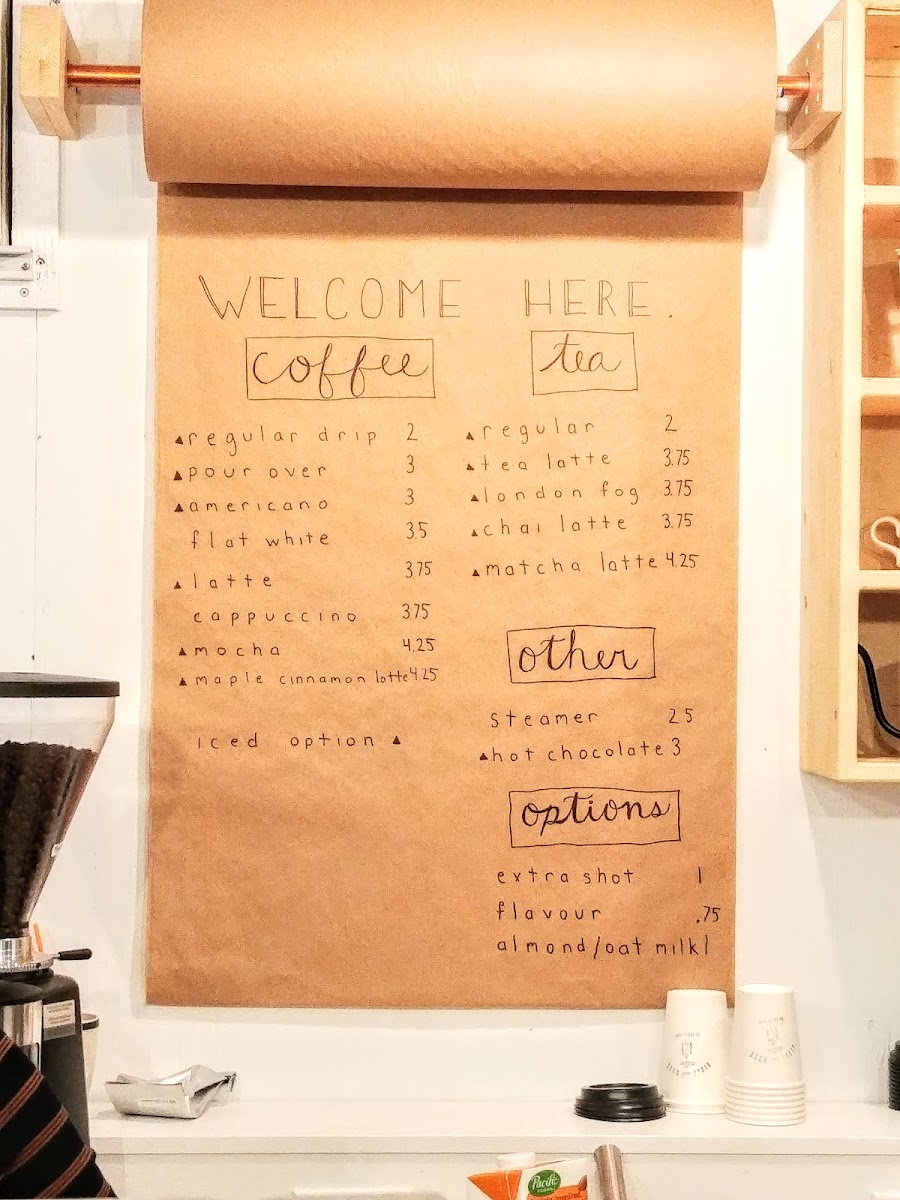 WELCOME HERE.
coffee
▲regular drip 2
▲pour over 3
▲americano 3
flat white 3.5
▲latte 3.75
cappuccino 3.75
▲mocha 4.25
▲maple cinnamon latte 4.25
iced option ▲
tea
▲regular 2
▲tea latte 3.75
▲london fog 3.75
▲chai latte 3.75
▲matcha latte 4.25
other
steamer 2.5
▲hot chocolate 3
options
extra shot 1
flavour .75
almond/oat milk 1
Pacific